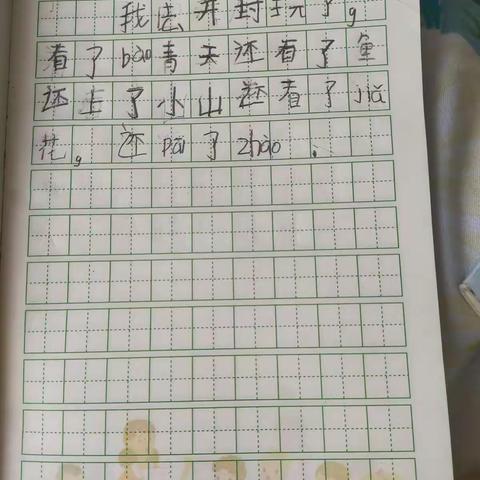 我去开封玩了。
看了bāo青天还看了鱼
还上了小山还看了jiǎ
花。还pāi了zhào.